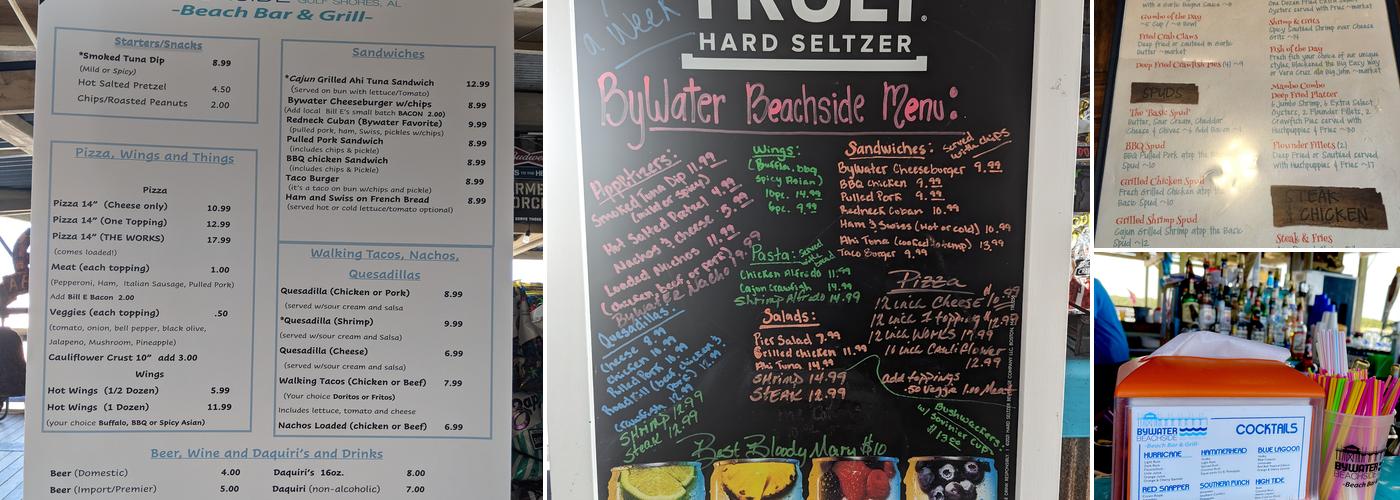 GULF SHORES, AL
-Beach Bar & Grill-
Starters/Snacks
*Smoked Tuna Dip 8.99
(Mild or Spicy)
Hot Salted Pretzel 4.50
Chips/Roasted Peanuts 2.00
Pizza, Wings and Things
Pizza
Pizza 14" (Cheese only) 10.99
Pizza 14" (One Topping) 12.99
Pizza 14" (THE WORKS) 17.99
(comes loaded!)
Meat (each topping) 1.00
(Pepperoni, Ham, Italian Sausage, Pulled Pork)
Add Bill E Bacon 2.00
Veggies (each topping) .50
(tomato, onion, bell pepper, black olive,
Jalapeno, Mushroom, Pineapple)
Cauliflower Crust 10" add 3.00
Wings
Hot Wings (1/2 Dozen) 5.99
Hot Wings (1 Dozen) 11.99
(your choice Buffalo, BBQ or Spicy Asian)
Sandwiches
*Cajun Grilled Ahi Tuna Sandwich 12.99
(Served on bun with lettuce/Tomato)
Bywater Cheeseburger w/chips 8.99
(Add local Bill E's small batch BACON 2.00)
Redneck Cuban (Bywater Favorite) 9.99
(pulled pork, ham, Swiss, pickles w/chips)
Pulled Pork Sandwich 8.99
(includes chips & pickle)
BBQ chicken Sandwich 8.99
(includes chips & Pickle)
Taco Burger 8.99
(it's a taco on bun w/chips and pickle)
Ham and Swiss on French Bread 8.99
(served hot or cold lettuce/tomato optional)
Walking Tacos, Nachos,
Quesadillas
Quesadilla (Chicken or Pork) 8.99
(served w/sour cream and salsa
*Quesadilla (Shrimp) 9.99
(served w/sour cream and Salsa)
Quesadilla (Cheese) 6.99
(served w/sour cream and salsa)
Walking Tacos (Chicken or Beef) 7.99
(Your choice Doritos or Fritos)
Includes lettuce, tomato and cheese
Nachos Loaded (chicken or Beef) 6.99
Beer, Wine and Daquiri's and Drinks
Beer (Domestic) 4.00
Beer (Import/Premier) 5.00
Daquiri's 16oz. 8.00
Daquiri (non-alcoholic) 7.00
a week
TRULY
HARD SELTZER
ByWater Beachside Menu:
Appetizers:
Smoked Tuna Dip 11.99
(mild or spicy)
Hot Salted Pretzel 4.99
Nachos & cheese 5.99
Loaded Nachos 11.99
(chicken, beef or pork)
Quesadillas:
cheese 8.99
chicken 10.99
Pulled Pork 10.99
crawfish 12.99
Shrimp 12.99
Steak 12.99
Wings:
(Buffalo, bbq,
spicy Asian)
10pc. 14.99
6pc. 9.99
Pasta: served with bread
Chicken Alfredo 11.99
Cajun crawfish 14.99
Shrimp Alfredo 14.99
Salads:
Pier Salad 7.99
Grilled chicken 11.99
Ahi Tuna 14.99
Shrimp 14.99
STEAK 12.99
Sandwiches: Served with chips
Bywater Cheeseburger 9.99
BBQ Chicken 9.99
Pulled Pork 9.99
Redneck Cuban 10.99
Ham & Swiss (Hot or cold) 10.99
Ahi Tuna 13.99
Taco Burger 9.99
Pizza
12 inch Cheese
12 inch 1 topping
12 inch Works
10 inch Cauliflower
12.99
add toppings
.50 Veggie 1.00 Meat
Bushwackers
w/ Souvinier Cup
Best Bloody Mary $10
Gumbo of the Day
~5 Cup / ~8 Bowl
Fried Crab Claws
Deep fried or sauteed in Garlic
Butter ~market
Deep Fried Crawfish Pies (4) ~9
SPUDS
The 'Basic Spud'
Butter, Sour Cream, Cheddar
Cheese & Chives
BBQ Spud
BBQ Pulled Pork atop the
Spud ~10
Grilled Chicken Spud
Fresh Grilled Chicken atop
Basic Spud ~10
Grilled Shrimp Spud
Cajun Grilled Shrimp atop the Basic
Spud ~12
Oysters served with Fries ~market
Shrimp & Grits
Spicy Sauteed Shrimp over Cheese
Grits ~14
Fish of the Day
Fresh fish your choice of our unique
styles, Blackened the Big Easy Way
or Vera Cruz ala Big John ~market
Mambo Combo
Deep Fried Platter
6 Jumbo Shrimp, 6 Extra Select
Oysters, 2 Flounder Fillets, 2
Crawfish Pies served with
Hushpuppies & Fries ~30
Flounder Fillets (2)
Deep Fried or Sauteed served
with Hushpuppies & Fries ~17
STEAK
& CHICKEN
Steak & Fries
BYWATER
BEACHSIDE
-Beach Bar & Grill-
COCKTAILS
HURRICANE
HAMMERHEAD
BLUE LAGOON
RED SNAPPER
SOUTHERN PUNCH
HIGH TIDE
BYWATER
BEACHSIDE
-Beach Bar